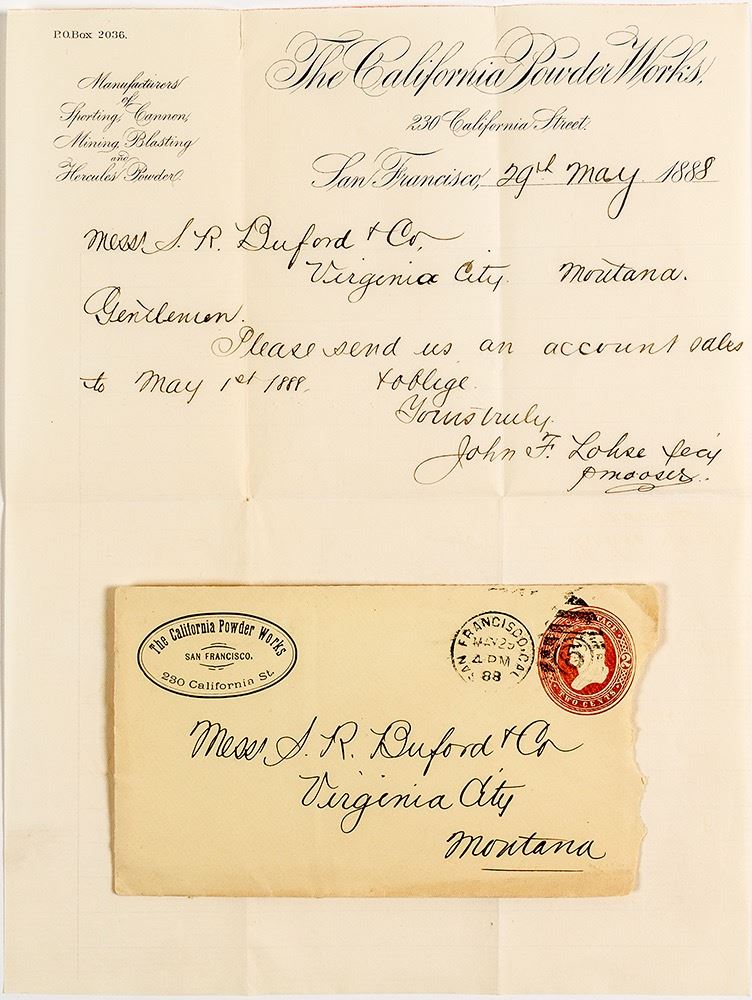 P.O.Box 2036.
The California Powder Works,
Manufacturers
of
Sporting, Cannon,
Mining, Blasting
and
Hercules Powder.
230 California Street.
San Francisco, 29th May 1888
Messrs S. R. Buford & Co,
Virginia City. Montana.
Gentlemen.
Please send us an account sales
to May 1st 1888. & oblige.
Yours truly.
John F. Lohse Secy
The California Powder Works
SAN FRANCISCO.
230 California St.
SAN FRANCISCO, CAL
MAY 29
4 PM
88
TWO CENTS
2
Messrs S. R. Buford & Co
Virginia City
Montana